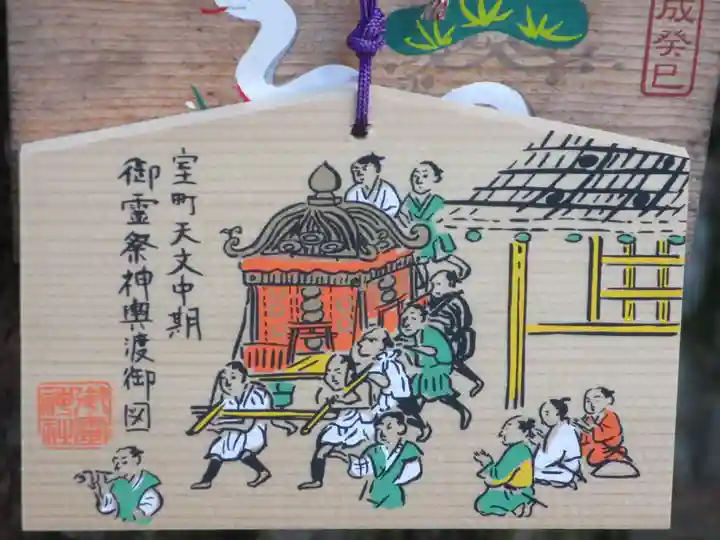 室町天文中期
御霊祭神輿渡御図
御霊神社
成癸巳